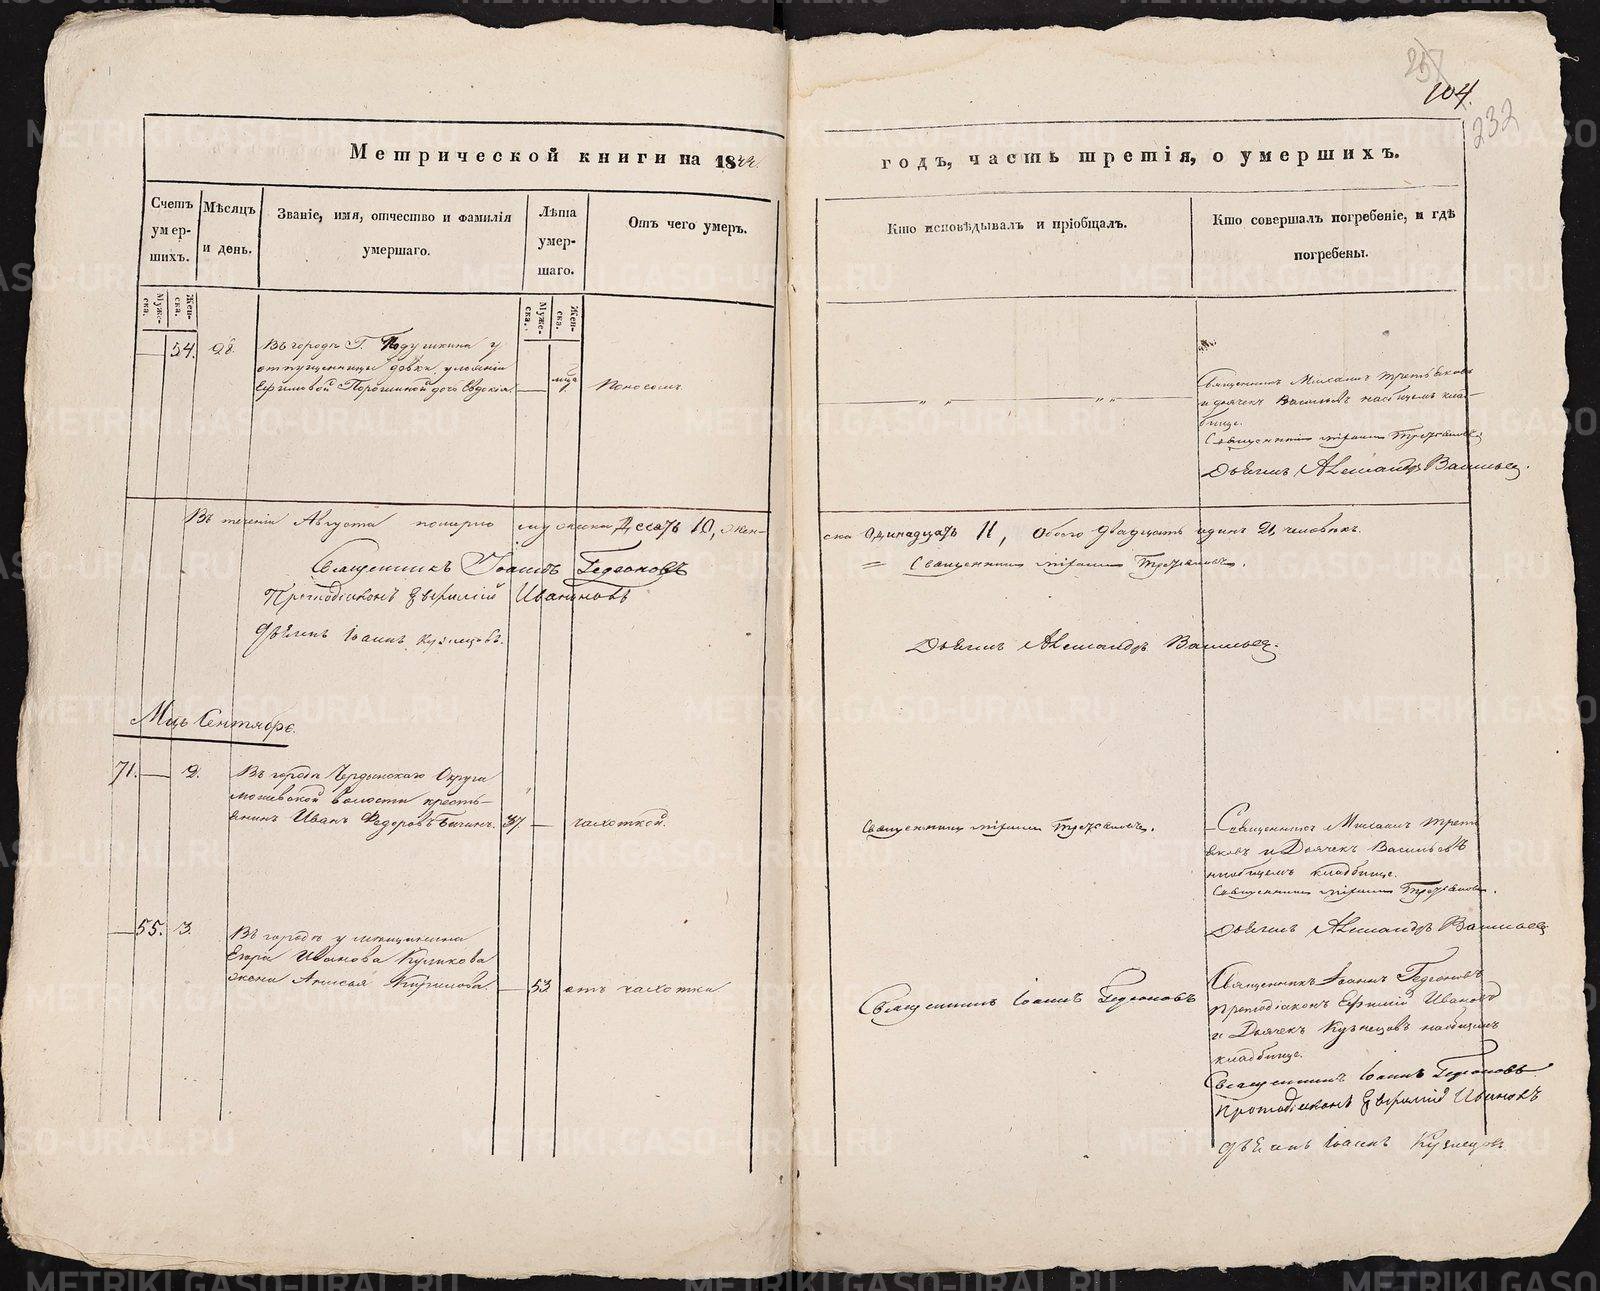 257
104.
232
Метрической книги на 1844.
годъ, часть третія, о умершихъ.
Счетъ умершихъ.
Мѣсяцъ и день.
Званіе, имя, отчество и фамилія умершаго.
Лѣта умершаго.
Отъ чего умеръ.
Кто исповѣдывалъ и пріобщалъ.
Кто совершалъ погребеніе, и гдѣ погребены.
Мужеска.
Женска.
Мужеска.
Женска.
54. 28.
Въ городѣ Г. Подушкина у
отпущенницы дѣвки
Порошиной дочь Евдокія
Поносомъ.
Священникъ Михаилъ Третьяковъ
и дьячекъ Васильевъ на общемъ клад-
бище.
Священникъ Михаилъ Третьяковъ
Дьячекъ Александръ Васильевъ.
Въ теченіи Августа померло мужеска Десать 10, жен-
ска Одинадцать 11, Обоего двадцать одинъ 21, человѣкъ.
Священникъ Іоаннъ Гедеоновъ
Священникъ Михаилъ Третьяковъ.
Протодіаконъ Евфимій Ивановъ
Дьячекъ Іоаннъ Кузнецовъ.
Дьячекъ Александръ Васильевъ.
Мцъ Сентябрь.
71. 2.
Въ городѣ Чердынскаго Округа
волости кресть-
янинъ Иванъ Федоровъ
37.
чахоткой.
Священникъ Михаилъ Третьяковъ.
Священникъ Михаилъ Треть
яковъ и Дьячекъ Васильевъ
на общемъ кладбище.
Священникъ Михаилъ Третьяковъ.
Дьячекъ Александръ Васильевъ
55. 3.
Въ городѣ у мещанина
Егора Иванова Куликова
жена Анисья Кирилова.
53
отъ чахотки
Священникъ Іоаннъ Гедеоновъ
Священникъ Іоаннъ Гедеоновъ
протодіаконъ Ефимій Ивановъ
и Дьячекъ Кузнецовъ на общемъ
кладбище.
Священникъ Іоаннъ Гедеоновъ
Протодіаконъ Евфимій Ивановъ
Дьячекъ Іоаннъ Кузнецовъ
METRIKI.GASO-URAL.RU